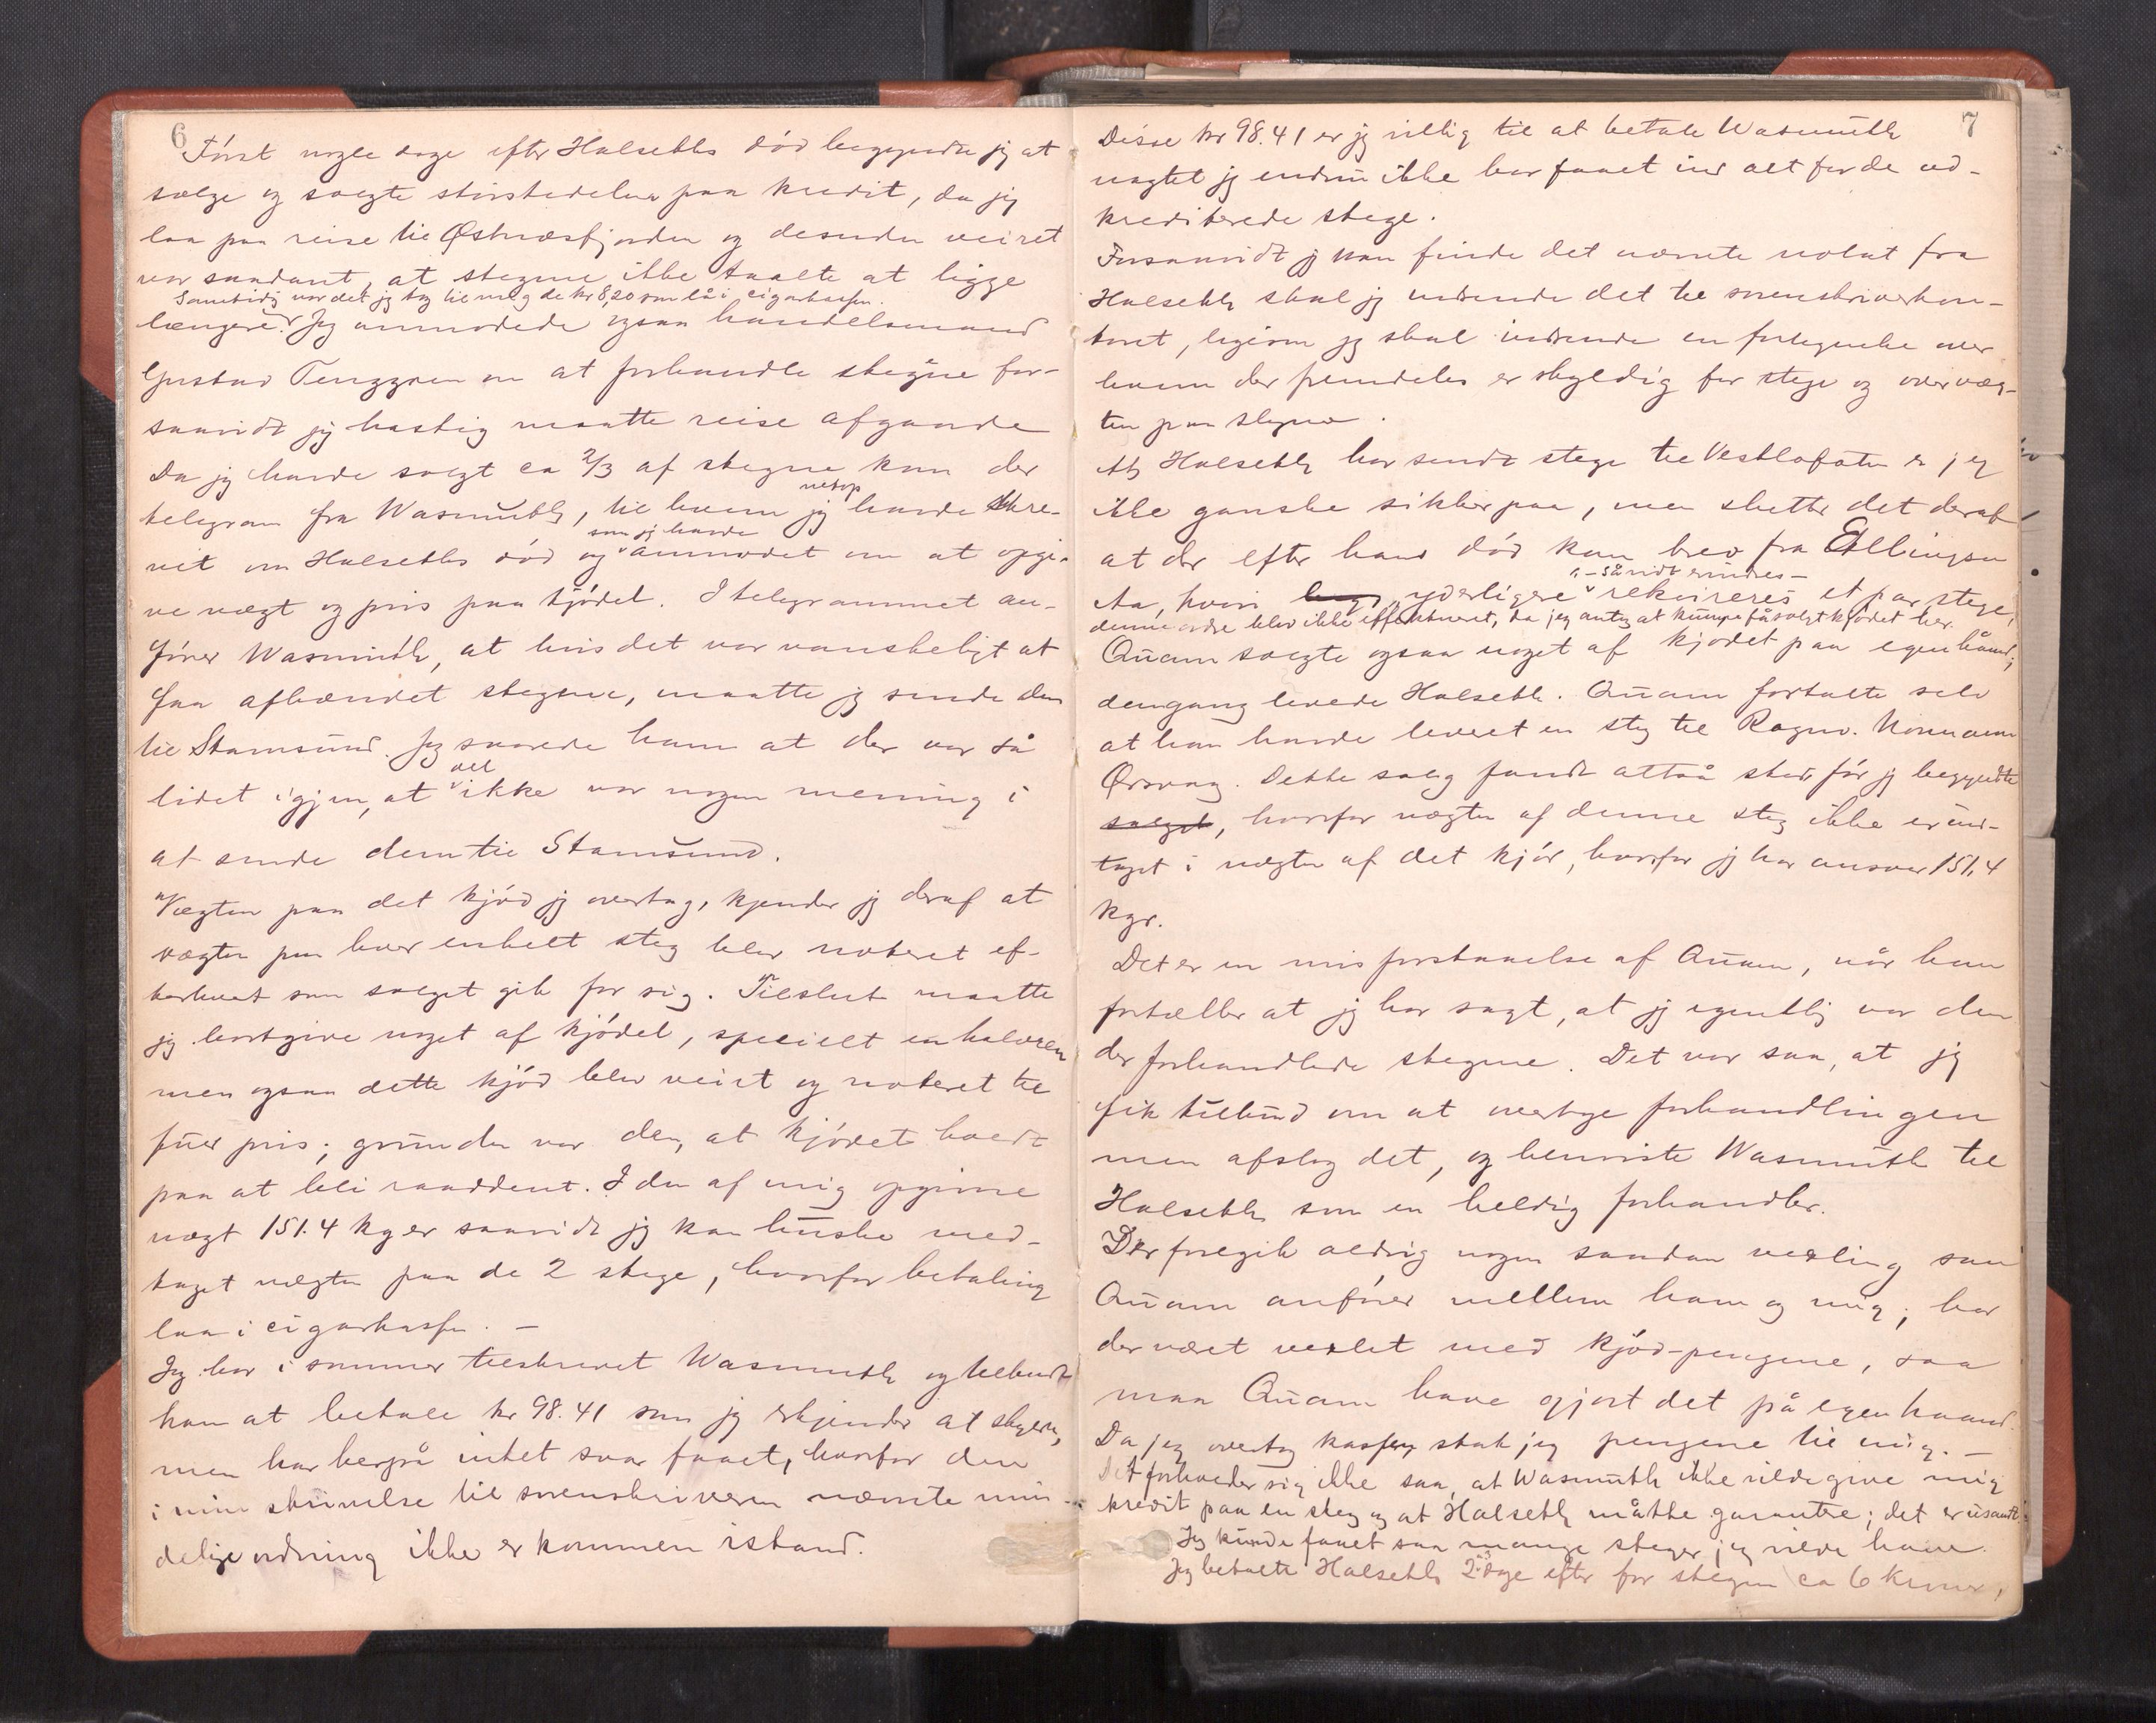 6
Først nogle dage efter Halseths død begyndte jeg at
sælge og solgte størstedelen paa kredit, da jeg
laa paa reise til Østnæsfjorden og desuden veiret
var saadant, at stegene ikke taalte at ligge
Samtidig var det jeg tog til mig de kr 8,20 som lå i cigarkassen.
længere. Jeg anmodede ogsaa handelsmand
Gustav Tenggren om at forhandle stegene for-
saavidt jeg hastig maatte reise afgaarde
Da jeg havde solgt ca 2/3 af stegene kom der
netop
telegram fra Wasmuth, til hvem jeg havde skre-
som jeg havde
vet om Halseths død og anmodet om at opgi-
ve vægt og pris paa kjødet. I telegrammet an-
fører Wasmuth, at hvis det var vanskeligt at
faa afhændet stegene, maatte jeg sende dem
til Stamsund. Jeg svarede ham at der var så
vel
lidet igjen, at ikke var nogen mening i
at sende dem til Stamsund.
Vægten paa det kjød jeg overtog, kjender jeg deraf at
vægten paa hver enkelt steg blev noteret ef-
terhvert som salget gik for sig. Tilslut maatte
jeg bortgive noget af kjødet, specielt en halvsteg
men ogsaa dette kjød blev veiet og noteret til
fuld pris; grunden var den, at kjødet holdt
paa at bli raaddent. I den af mig opgivne
vægt 151.4 kg er saavidt jeg kan huske med-
taget vægten paa de 2 stege, hvorfor betaling
laa i cigarkassen. —
Jeg har i sommer tilskrevet Wasmuth og tilbudt
ham at betale kr 98.41 som jeg erkjender at skylde,
men har herpå intet svar faaet, hvorfor den
i min skrivelse til sorenskriveren nævnte min-
delige ordning ikke er kommen istand.
7
Disse kr 98.41 er jeg villig til at betale Wasmuth
uagtet jeg endnu ikke har faaet ind alt for de ud-
krediterede stege.
Forsaavidt jeg kan finde det nævnte notat fra
Halseth skal jeg indsende det til sorenskriverkon-
toret, ligesom jeg skal indsende en fortegnelse over
hvem der fremdeles er skyldig for stege og over væg-
ten paa stegene.
At Halseth har sendt stege til Vestlofoten er jeg
ikke ganske sikker paa, men slutter det deraf
at der efter hans død kom brev fra Ellingsen
— såvidt erindres —
Aa, hvori yderligere rekvireres et par stege,
denne ordre blev ikke effektueret, da jeg antog at kunne få solgt kjødet her.
Quam solgte ogsaa noget af kjødet paa egen hånd;
dengang levede Halseth. Quam fortalte selv
at han havde leveret en steg til Ragnv. Normann
Ørsvaag. Dette salg fandt altså sted før jeg begyndte
salget, hvorfor vægten af denne steg ikke er ind-
taget i vægten af det kjød, hvorfor jeg har ansvar 151,4
kgr.
Det er en misforstaaelse af Quam, når han
fortæller at jeg har sagt, at jeg egentlig var den
der forhandlede stegene. Det var saa, at jeg
fik tilbud om at overtage forhandlingen
men afslog det, og henviste Wasmuth til
Halseth som en heldig forhandler.
Der foregik aldrig nogen saadan veksling som
Quam anfører mellem ham og mig; har
der været vexlet med kjød-pengene, saa
maa Quam have gjort det på egen haand.
Da jeg overtog kassen stak jeg pengene til mig. —
Det forholder sig ikke saa, at Wasmuth ikke vilde give mig
kredit paa en steg og at Halseth måtte garantere; det er usandt.
Jeg kunde faaet saa mange steger jeg vilde have.
Jeg betalte Halseth 2-3 dage efter for stegen ca 6 kroner,